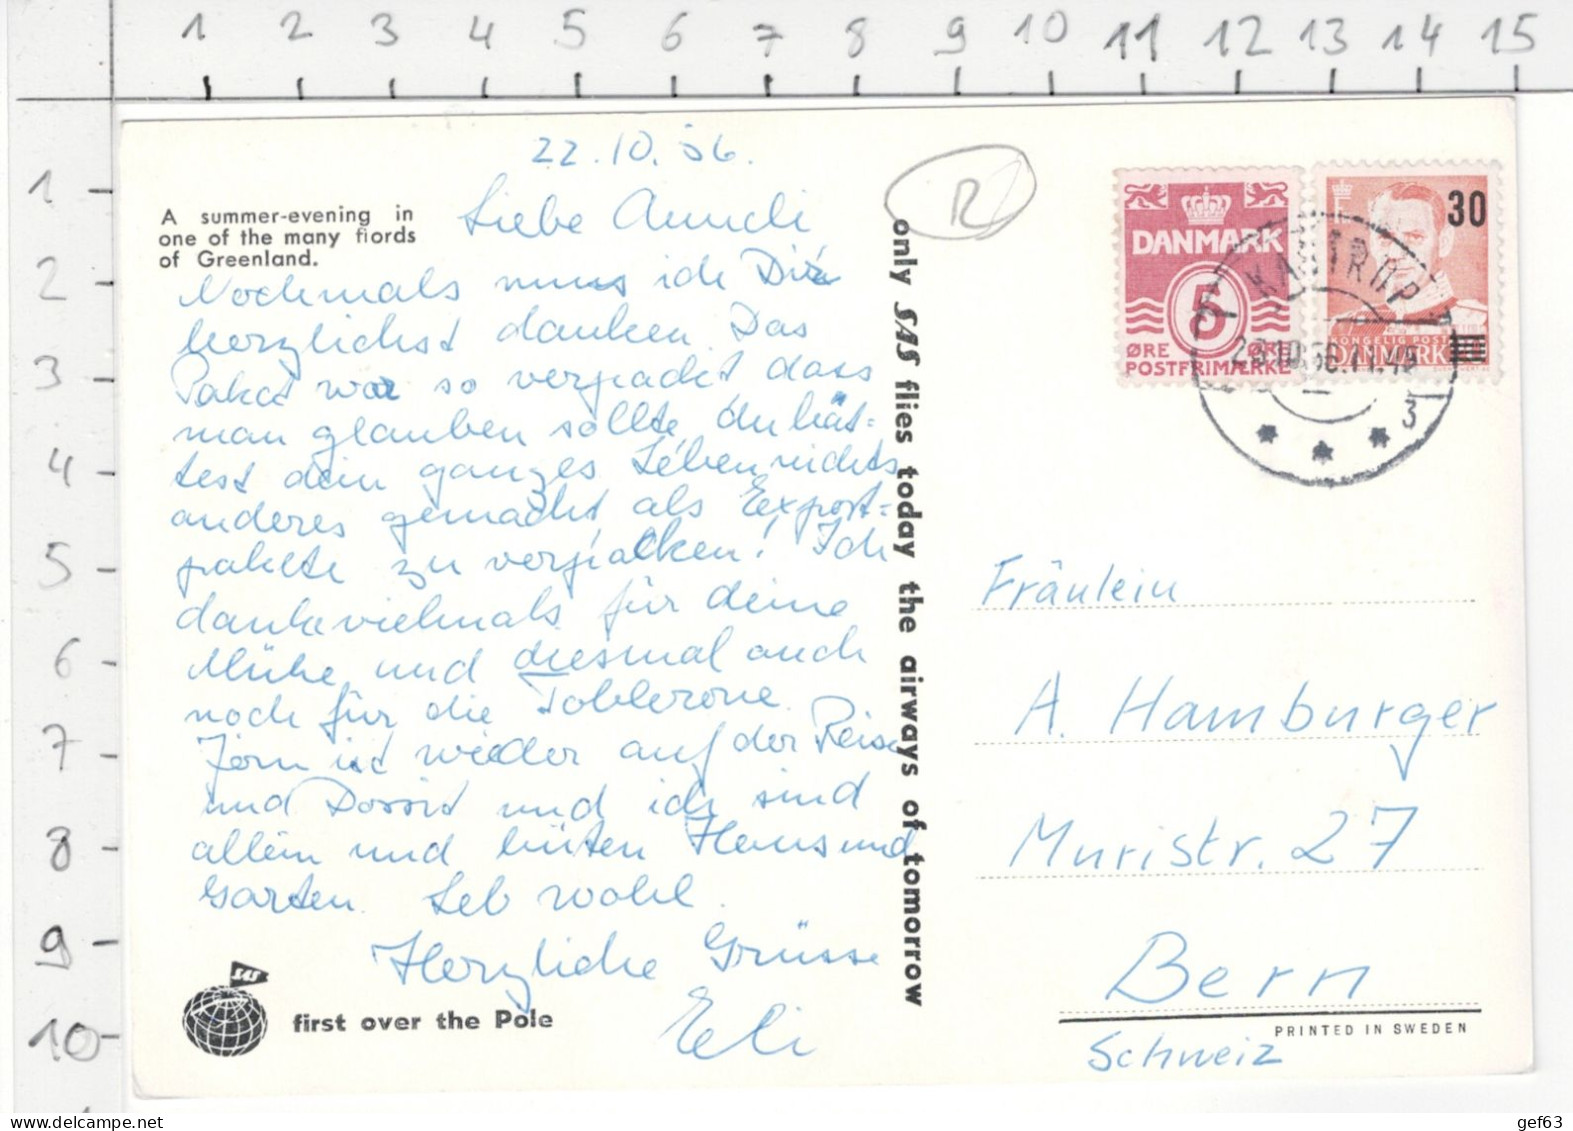 1 2 3 4 5 6 7 8 9 10 11 12 13 14 15
1
2
3
4
5
6
7
8
9
10
22.10.56.
A summer-evening in
one of the many fiords
of Greenland.
Liebe
Nochmals muss ich Dir
herzlichst danken. Das
Paket war so verpackt dass
man glauben sollte, du hät=
test dein ganzes Leben nichts
anderes gemacht, als Export=
pakete zu verpacken! Ich
danke vielmals für deine
Mühe und diesmal auch
noch für die Toblerone.
Jörn ist wieder auf der Reise
und und ich sind
allein und hüten Haus und
Garten. Leb wohl.
Herzliche Grüsse
Eli
SAS
first over the Pole
only SAS flies today the airways of tomorrow
R
DANMARK
5
ØRE ØRE
POSTFRIMÆRKE
30
KONGELIG POST
DANMARK
KASTRUP
23.10.56.11.40
3
Fräulein
A. Hamburger
Muristr. 27
Bern
PRINTED IN SWEDEN
Schweiz
© Delcampe.net
gef63